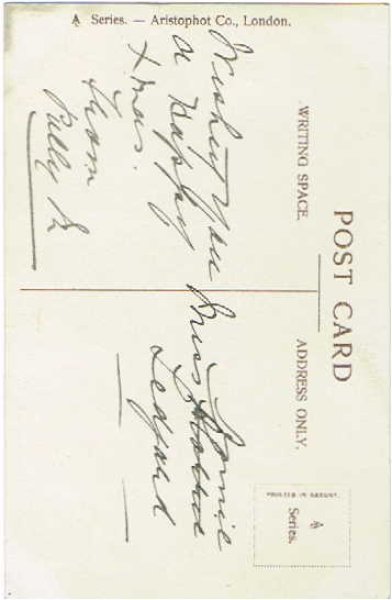 A Series. — Aristophot Co., London.
POST CARD
WRITING SPACE.
ADDRESS ONLY.
PRINTED IN SAXONY.
A
Series.
Wishing you
a Happy
Xmas.
from
Billy L
Miss
Legard